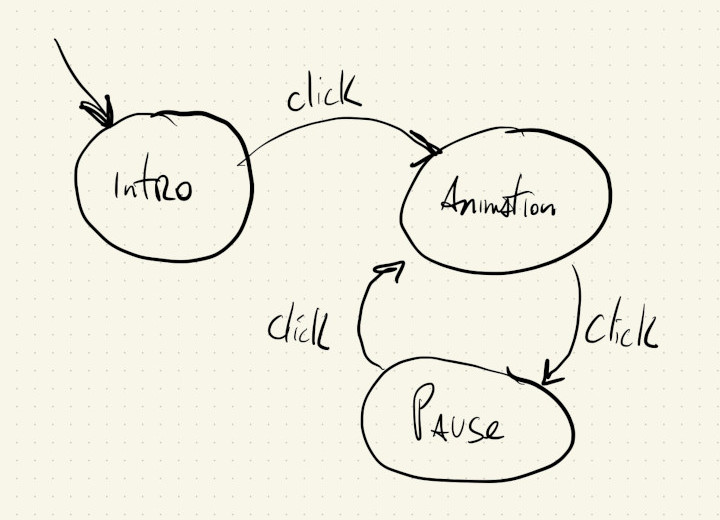 click
Intro
Animation
click
click
Pause